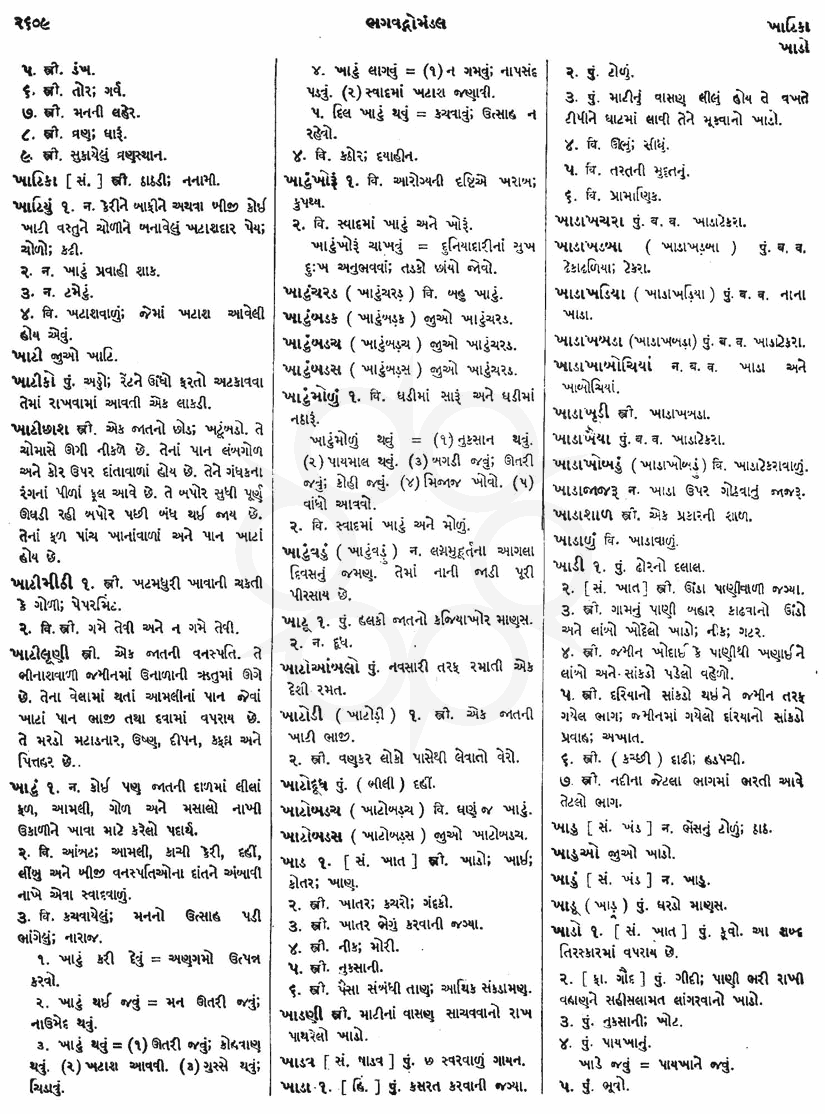 ૨૬૦૯
ભગવદ્ગોમંડલ
ખાટિકા
ખાડો
૫. સ્ત્રી. ડંખ.
૬. સ્ત્રી. તોર; ગર્વ.
૭. સ્ત્રી. મનની લહેર.
૮. સ્ત્રી. વ્રણ; ઘારૂં.
૯. સ્ત્રી. સુકાયેલું વ્રણસ્થાન.
ખાટિકા [ સં. ] સ્ત્રી. ઠાઠડી; નનામી.
ખાટિયું ૧. ન. કેરીને બાફીને અથવા બીજી કોઈ
ખાટી વસ્તુને ચોળીને બનાવેલું ખટાશદાર પેય;
ચોળો; કઢી.
૨. ન. ખાટું પ્રવાહી શાક.
૩. ન. ટમેટું.
૪. વિ. ખટાશવાળું; જેમાં ખટાશ આવેલી
હોય એવું.
ખાટી જીઓ ખાટિ.
ખાટીકો પું. અડ્ડો; રેંટને ઊંધો ફરતો અટકાવવા
તેમાં રાખવામાં આવતી એક લાકડી.
ખાટીછાશ સ્ત્રી. એક જાતનો છોડ; ખટૂંબડો. તે
ચોમાસે ઊગી નીકળે છે. તેનાં પાન લંબગોળ
અને કોર ઉપર દાંતાવાળાં હોય છે. તેને ગંધકના
રંગનાં પીળાં ફૂલ આવે છે. તે બપોર સુધી પૂર્ણ
ઊઘડી રહી બપોર પછી બંધ થઈ જાય છે.
તેનાં ફળ પાંચ ખાનાંવાળાં અને પાન ખાટાં
હોય છે.
ખાટીમીઠી ૧. સ્ત્રી. ખટમધુરી ખાવાની ચકતી
કે ગોળી; પેપરમિંટ.
૨. વિ. સ્ત્રી. ગમે તેવી અને ન ગમે તેવી.
ખાટીલૂણી સ્ત્રી. એક જાતની વનસ્પતિ. તે
ભીનાશવાળી જમીનમાં ઉનાળાની ઋતુમાં ઊગે
છે. તેના વેલામાં થતાં આમલીનાં પાન જેવાં
ખાટાં પાન ભાજી તથા દવામાં વપરાય છે.
તે મરડો મટાડનાર, ઉષ્ણ, દીપન, કફઘ્ન અને
પિત્તહર છે.
ખાટું ૧. ન. કોઈ પણ જાતની દાળમાં લીલાં
ફળ, આમલી, ગોળ અને મસાલો નાખી
ઉકાળીને ખાવા માટે કરેલો પદાર્થ.
૨. વિ. આંબટ; આમલી, કાચી કેરી, દહીં,
લીંબુ અને બીજી વનસ્પતિઓના દાંતને અંબાવી
નાખે એવા સ્વાદવાળું.
૩. વિ. કચવાયેલું; મનનો ઉત્સાહ પડી
ભાંગેલું; નારાજ.
૧. ખાટું કરી દેવું = અણગમો ઉત્પન્ન
કરવો.
૨. ખાટું થઈ જવું = મન ઊતરી જવું;
નાઉમેદ થવું.
૩. ખાટું થવું = (૧) ઊતરી જવું; કોહવાણ
થવું. (૨) ખટાશ આવવી. (૩) ગુસ્સે થવું;
ચિડાવું.
૪. ખાટું લાગવું = (૧) ન ગમવું; નાપસંદ
પડવું. (૨) સ્વાદમાં ખટાશ જણાવી.
૫. દિલ ખાટું થવું = કચવાવું; ઉત્સાહ ન
રહેવો.
૪. વિ. કઠોર; દયાહીન.
ખાટુંખોરૂં ૧. વિ. આરોગ્યની દૃષ્ટિએ ખરાબ;
કુપથ્ય.
૨. વિ. સ્વાદમાં ખાટું અને ખોરૂં.
ખાટુંખોરૂં ચાખવું = દુનિયાદારીનાં સુખ
દુઃખ અનુભવવાં; તડકો છાંયો જોવો.
ખાટુંચરડ ( ખાટુંચરડ઼ ) વિ. બહુ ખાટું.
ખાટુંબડક ( ખાટુંબડ઼ક ) જીઓ ખાટુંચરડ.
ખાટુંબડચ ( ખાટુંબડ઼ચ ) જીઓ ખાટુંચરડ.
ખાટુંબડસ ( ખાટુંબડ઼સ ) જીઓ ખાટુંચરડ.
ખાટુંમોળું ૧. વિ. ઘડીમાં સારૂં અને ઘડીમાં
નઠારૂં.
ખાટુંમોળું થવું = (૧) નુકસાન થવું.
(૨) પાયમાલ થવું. (૩) બગડી જવું; ઊતરી
જવું; કોહી જવું. (૪) મિજાજ ખોવો. (૫)
વાંધો આવવો.
૨. વિ. સ્વાદમાં ખાટું અને મોળું.
ખાટુંવડું ( ખાટુંવડું઼ ) ન. લગ્નમુહૂર્તના આગલા
દિવસનું જમણ. તેમાં નાની જાડી પૂરી
પીરસાય છે.
ખાટૂ ૧. પું. હલકી જાતનો કજિયાખોર માણસ.
૨. ન. દૂધ.
ખાટોઆંબલો પું. નવસારી તરફ રમાતી એક
દેશી રમત.
ખાટોડી ( ખાટોડ઼ી ) ૧. સ્ત્રી. એક જાતની
ખાટી ભાજી.
૨. સ્ત્રી. વણકર લોકો પાસેથી લેવાતો વેરો.
ખાટોદૂધ પું. ( ભીલી ) દહીં.
ખાટોબડચ ( ખાટોબડ઼ચ ) વિ. ઘણું જ ખાટું.
ખાટોબડસ ( ખાટોબડ઼સ ) જીઓ ખાટોબડચ.
ખાડ ૧. [ સં. ખાત ] સ્ત્રી. ખાડો; ખાઈ;
કોતર; ખાણ.
૨. સ્ત્રી. ખાતર; કચરો; ગંદકી.
૩. સ્ત્રી. ખાતર ભેગું કરવાની જગ્યા.
૪. સ્ત્રી. નીક; મોરી.
૫. સ્ત્રી. નુકસાની.
૬. સ્ત્રી. પૈસા સંબંધી તાણ; આર્થિક સંકડામણ.
ખાડણી સ્ત્રી. માટીનાં વાસણ સાચવવાનો રાખ
પાથરેલો ખાડો.
ખાડવ [ સં. ષાડવ ] પું. ૭ સ્વરવાળું ગાયન.
ખાડા ૧. [ હિં. ] પું. કસરત કરવાની જગ્યા.
૨. પું. ટોળું.
૩. પું. માટીનું વાસણ લીલું હોય તે વખતે
ટીપીને ઘાટમાં લાવી તેને મૂકવાનો ખાડો.
૪. વિ. ઊભું; સીધું.
૫. વિ. તરતની મુદતનું.
૬. વિ. પ્રામાણિક.
ખાડાખચરા પું. બ. વ. ખાડાટેકરા.
ખાડાખડબા ( ખાડાખડ઼બા ) પું. બ. વ.
ટેકાઢળિયા; ટેકરા.
ખાડાખડિયા ( ખાડાખડ઼િયા ) પું. બ. વ. નાના
ખાડા.
ખાડાખબડા (ખાડાખબડ઼ા) પું. બ. વ. ખાડાટેકરા.
ખાડાખાબોચિયાં ન. બ. વ. ખાડા અને
ખાબોચિયાં.
ખાડાખૂડી સ્ત્રી. ખાડાખબડા.
ખાડાખૈયા પું. બ. વ. ખાડાટેકરા.
ખાડાખોબડું (ખાડાખોબડું઼) વિ. ખાડાટેકરાવાળું.
ખાડાજાજરૂ ન. ખાડા ઉપર ગોઠવાતું જાજરૂ.
ખાડાશાળ સ્ત્રી. એક પ્રકારની શાળ.
ખાડાળું વિ. ખાડાવાળું.
ખાડી ૧. પું. ઢોરનો દલાલ.
૨. [ સં. ખાત ] સ્ત્રી. ઊંડા પાણીવાળી જગ્યા.
૩. સ્ત્રી. ગામનું પાણી બહાર કાઢવાનો ઊંડો
અને લાંબો ખોદેલો ખાડો; નીક; ગટર.
૪. સ્ત્રી. જમીન ખોદાઈ કે પાણીથી ખણાઈને
લાંબો અને સાંકડો પડેલો વહેળો.
૫. સ્ત્રી. દરિયાનો સાંકડો થઈને જમીન તરફ
ગયેલ ભાગ; જમીનમાં ગયેલો દરિયાનો સાંકડો
પ્રવાહ; અખાત.
૬. સ્ત્રી. ( કચ્છી ) દાઢી; હડપચી.
૭. સ્ત્રી. નદીના જેટલા ભાગમાં ભરતી આવે
તેટલો ભાગ.
ખાડુ [ સં. ખંડ ] ન. ભેંસનું ટોળું; ઠાઠ.
ખાડુઓ જીઓ ખાડો.
ખાડું [ સં. ખંડ ] ન. ખાડુ.
ખાડૂ ( ખાડ઼ૂ ) પું. ઘરડો માણસ.
ખાડો ૧. [ સં. ખાત ] પું. કૂવો. આ શબ્દ
તિરસ્કારમાં વપરાય છે.
૨. [ ફા. ગૌદ ] પું. ગીદી; પાણી ભરી રાખી
વહાણને સહીસલામત લાંગરવાનો ખાડો.
૩. પું. નુકસાની; ખોટ.
૪. પું. પાયખાનું.
ખાડે જવું = પાયખાને જવું.
૫. પું. ભૂવો.